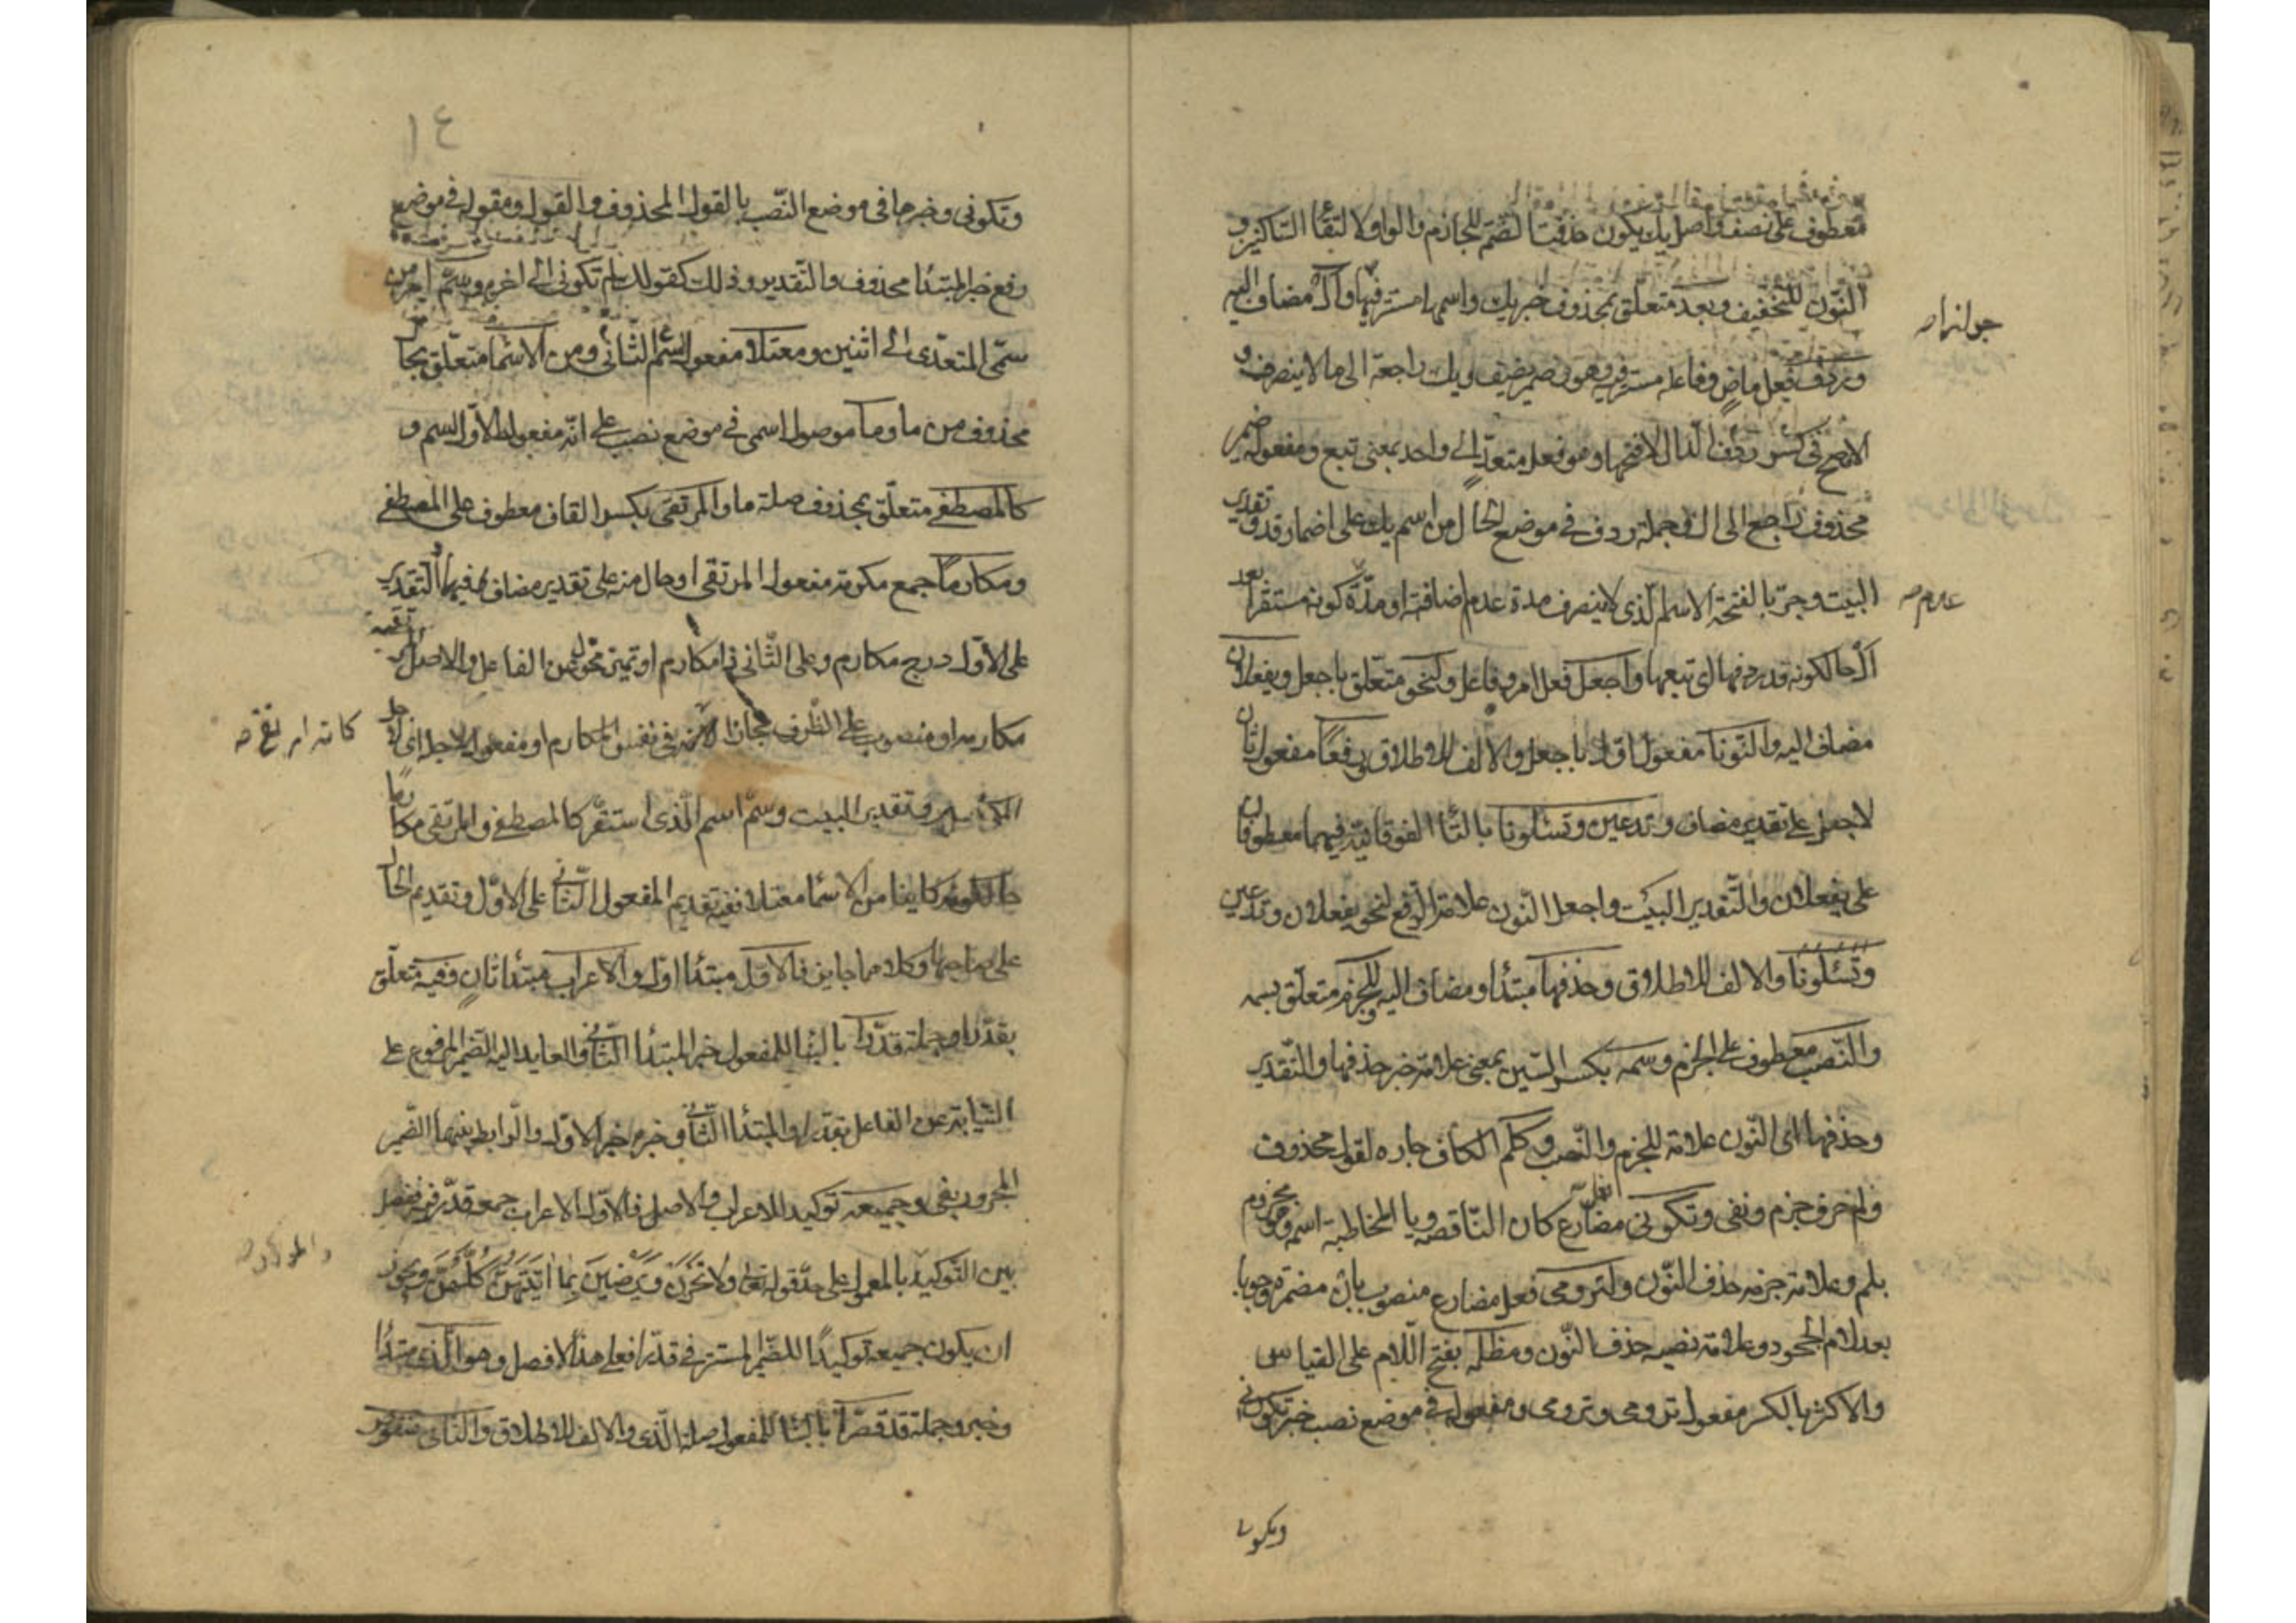 معطوف على نضف واصل يك يكون حذفت الضمة للجازم والواو لالتقاء الساكنين و
النون للتخفيف وبعد متعلق بمحذوف خبر يك واسمها مستتر فيها وال مضاف اليه
وردف فعل ماض وفاعله مستتر فيه وهو ضمير يضف ويك راجعة الى ما لا ينصرف و
الافصح في كسر ردف الدال لا فتحها وهو فعل متعد الى واحد بمعنى تبع ومفعوله ضمير
محذوف راجع الى ال وجملة ردف في موضع الحال من اسم يك على اضمار قد وتقدير
البيت وجر بالفتحة الاسم الذي لا ينصرف مدة عدم اضافته او مدة كونه مستقرا بعد
ال حالكونه قد ردفها اي تبعها واجعل فعل امر وفاعل ولنحو متعلق باجعل ويفعلان
مضاف اليه والنونا مفعول اول باجعل والالف للاطلاق ورفعا مفعول ثان
لاجعل على تقدير مضاف وتدعين وتسئلونا بالتاء الفوقانية فيهما معطوفان
على يفعلان والتقدير البيت واجعل النون علامة الرفع لنحو يفعلان وتدعين
وتسئلونا والالف للاطلاق وحذفها مبتدأ ومضاف اليه وللجزم متعلق بسمه
والنصب معطوف على الجزم وسمه بكسر السين بمعنى علامة خبر حذفها والتقدير
وحذفها اي النون علامة للجزم والنصب وكلم الكاف جاره لقول محذوف
ولم حرف جزم ونفي وتكوني مضارع كان الناقصه ويا المخاطبة اسمه ومجزوم
بلم وعلامة جزمه حذف النون ولترومي فعل مضارع منصوب بان مضمرة وجوبا
بعد لام الجحود وعلامة نصبه حذف النون ومظلمه بفتح اللام على القياس
والاكثر بالكسر مفعول ترومي وترومي ومفعوله في موضع نصب خبر تكوني
وتكوني
١٤
وتكوني وخبرها في موضع النصب بالقول المحذوف والقول ومقوله في موضع
رفع خبر المبتدأ محذوف والتقدير وذلك كقولك لم تكوني الى اخره وسم امر من
سمى المتعدي الى اثنين ومعتلا مفعول سم الثاني ومن الاسما متعلق بحال
محذوف من ما وما موصول اسمي في موضع نصب على انه مفعول الاول لسم و
كالمصطفى متعلق بمحذوف صلة ما والمرتقي بكسر القاف معطوف على المصطفى
ومكارما جمع مكرمة مفعول المرتقي او حال منه على تقدير مضاف فيهما والتقدير
على الاول درج مكارم وعلى الثاني ذا مكارم او تمييز محول عن الفاعل والاصل المرتقية
مكارمه او منصوب على الظرف مجازا في نفس المكارم او مفعول لاجله اي لاجل
المكارم وتقدير البيت وسم اسم الذي استقر كالمصطفى والمرتقي مكارما
حالكونه كاينا من الاسما معتلا ففيه تقديم المفعول الثاني على الاول وتقديم الحال
على صاحبها وكلاهما جايز فالاول مبتدأ اول والاعراب مبتدأ ثان وفيه متعلق
بقدرا وجملة قدرا بالبنا للمفعول خبر المبتدأ الثاني والعايد اليه الضمير المرفوع على
النيابة عن الفاعل بقدرا والمبتدأ الثاني وخبره خبر الاول والرابط بينهما الضمير
المجرور بفي وجميعه توكيد للاعراب والاصل فالاول الاعراب جمعه قدر فيه ففصل
بين التوكيد بالمعمول على حد قوله تعالى ولا يحزن ويرضين بما اتيتهن كلهن ويجوز
ان يكون جميعه توكيدا للضمير المستتر في قدرا فعلى هذا لا فصل وهو الذي مبتدأ
وخبر وجملة قد قصرا بالبنا للمفعول صلة الذي والالف للاطلاق والثاني منقوص